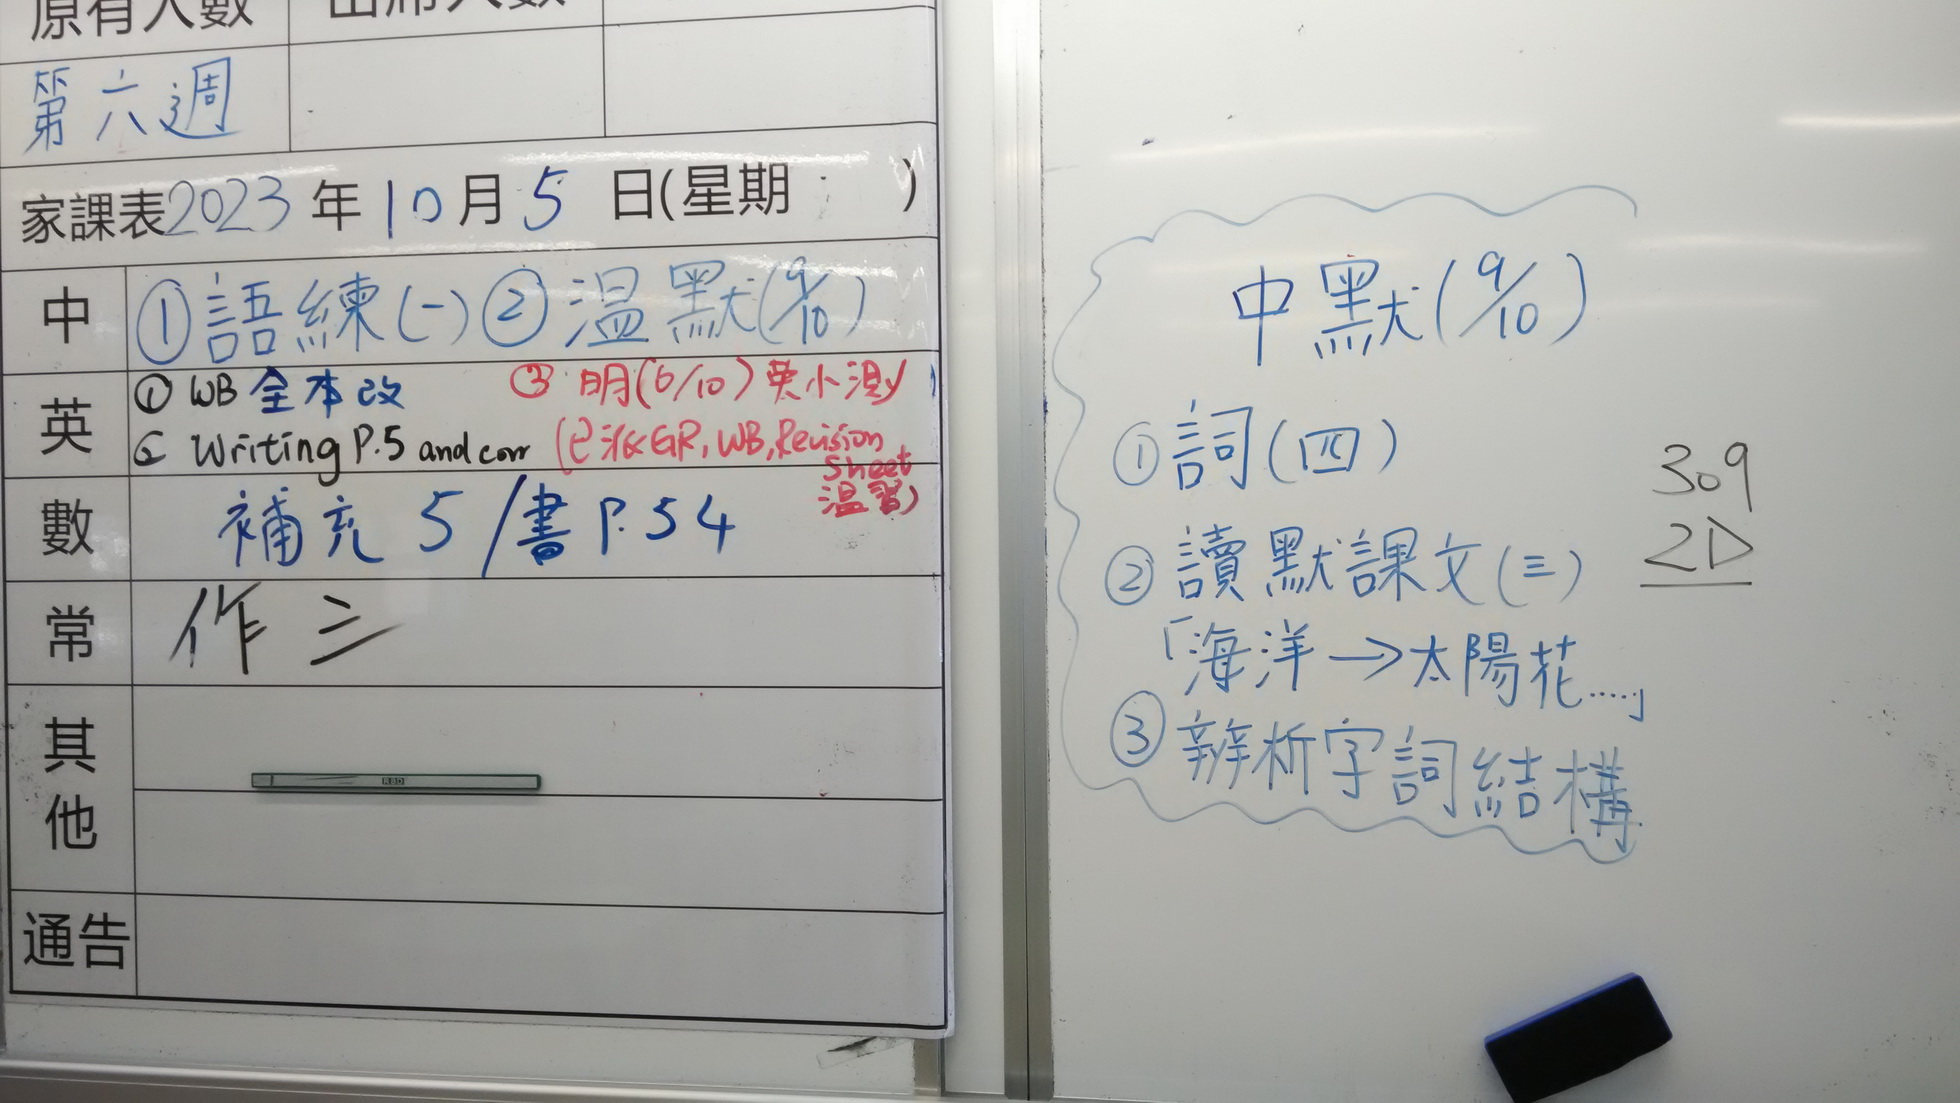 原有人數 出席人數
第六週
家課表2023年10月5日(星期 )
中 ①語練(一)②溫默(9/10)
英 ① WB 全本改 ③ 明(6/10)英小測
② Writing P.5 and corr (已派GR, WB, Revision
Sheet
溫習)
數 補充 5 / 書 P.54
常 作 三
其
他
通告
中默(9/10)
①詞(四)
②讀默課文(三)
「海洋→太陽花.....」
③辨析字詞結構
309
2D